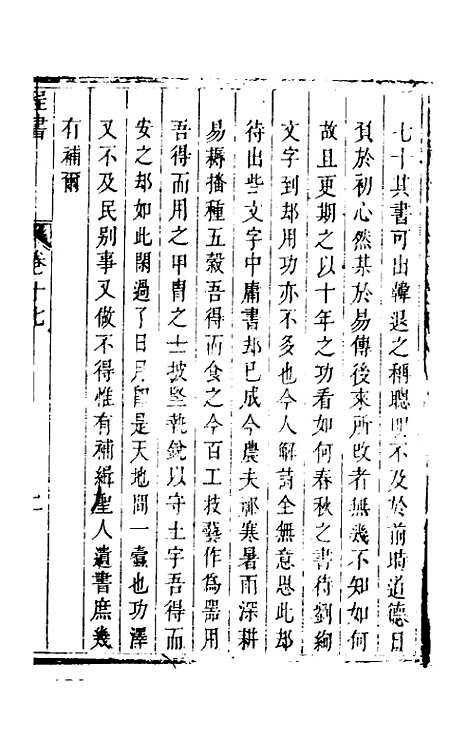 七十其書可出韓退之稱聰明不及於前時道德日
負於初心然某於易傳後來所改者無幾不知如何
故且更期之以十年之功看如何春秋之書待劉絢
文字到却用功亦不多也今人解詩全無意思此却
待出些文字中庸書却已成今農夫祁寒暑雨深耕
易耨播種五穀吾得而食之今百工技藝作為器用
吾得而用之甲冑之士披堅執銳以守土宇吾得而
安之却如此閑過了日月即是天地間一蠹也功澤
又不及民别事又做不得惟有補緝聖人遺書庶幾
有補爾
程書
卷十七